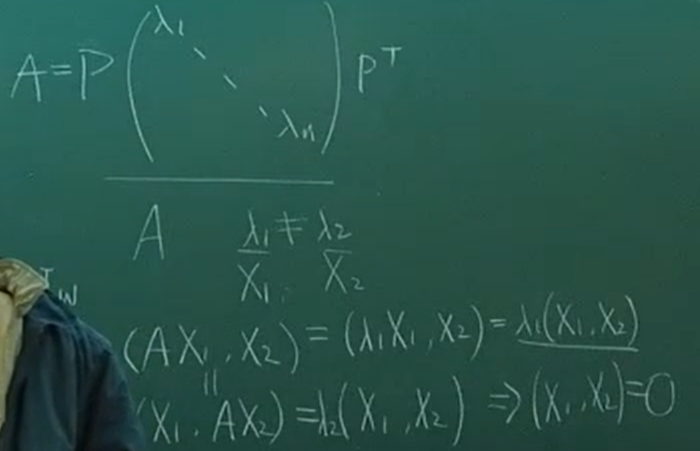 A=P(λ₁ ⋱ λₙ)Pᵀ
A λ₁≠λ₂
X₁ X₂
(AX₁,X₂)=(λ₁X₁,X₂)=λ₁(X₁,X₂)
||
(X₁,AX₂)=λ₂(X₁,X₂) ⇒(X₁,X₂)=0